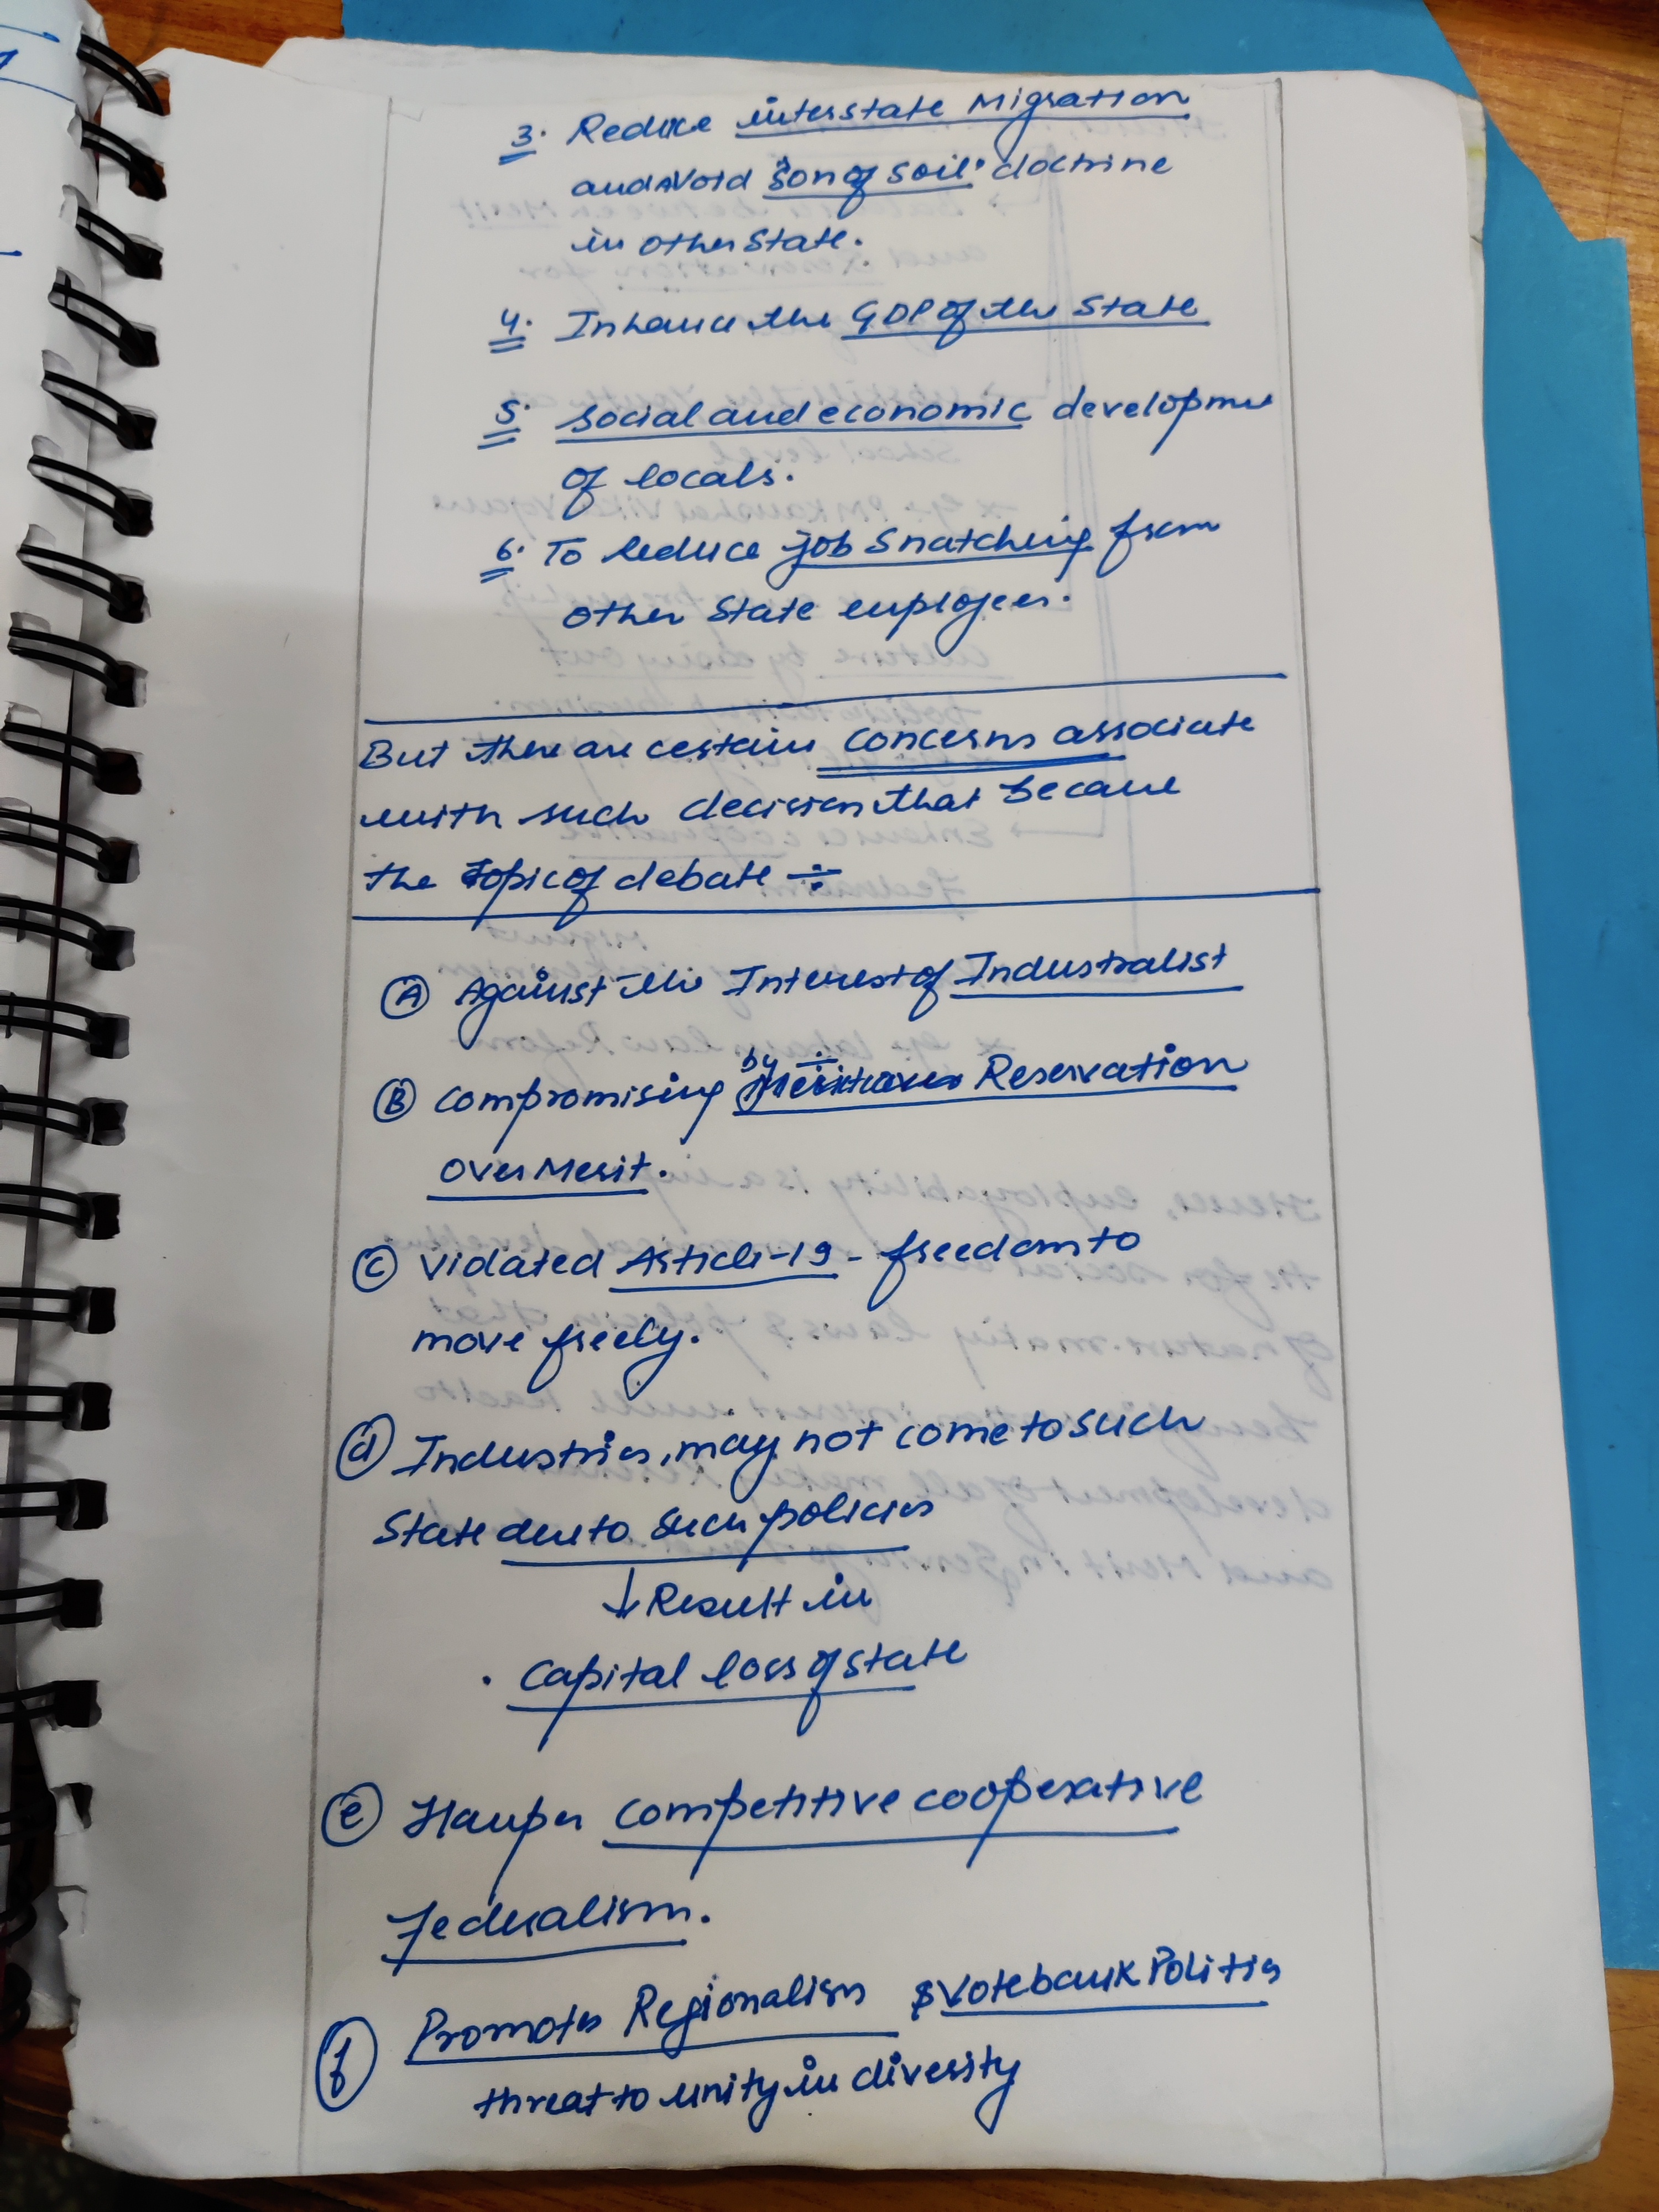 3. Reduce interstate Migration
and avoid "son of soil" doctrine
in other state.
4. Inhance the GDP of the State
5. social and economic developme
of locals.
6. To reduce job snatching from
other state employees.
But there are certain concerns associate
with such decision that became
the topic of debate ÷
(A) Against the Interest of Industralist
by ÷
(B) Compromising Reservation
over Merit.
(C) Violated Article-19 - freedom to
move freely.
(d) Industries, may not come to such
State due to such policies
↓ Result in
. Capital loss of state
(e) Hamper competitive cooperative
federalism.
(f) Promotes Regionalism & Votebank Politis
threat to unity in diversity